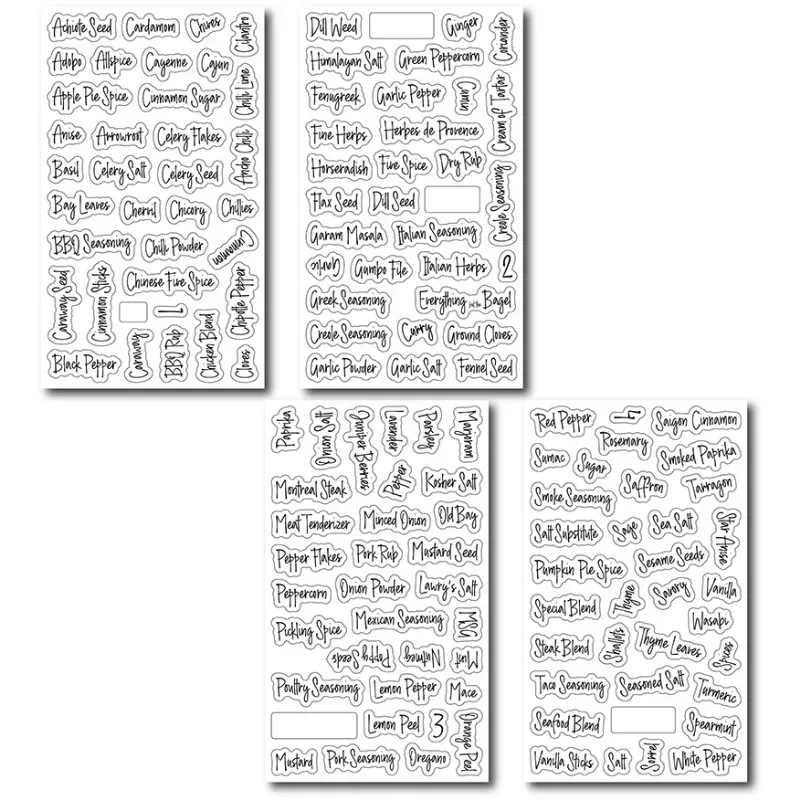 Achiote Seed Cardamom Chives Cilantro
Adobo Allspice Cayenne Cajun
Chili Lime
Apple Pie Spice Cinnamon Sugar
Anise Arrowroot Celery Flakes
Ancho Chili
Basil Celery Salt Celery Seed
Bay Leaves Chervil Chicory Chillies
BBQ Seasoning Chili Powder Cinnamon
Caraway Seed Cinnamon Sticks Chinese Five Spice Chipotle Pepper
1
Black Pepper Caraway BBQ Rub Chicken Blend Cloves
Dill Weed Ginger Coriander
Himalayan Salt Green Peppercorn
Fenugreek Garlic Pepper Cumin Cream of Tartar
Fine Herbs Herbes de Provence
Horseradish Five Spice Dry Rub Creole Seasoning
Flax Seed Dill Seed
Garam Masala Italian Seasoning
Garlic Gumbo File Italian Herbs 2
Greek Seasoning Everything but the Bagel
Creole Seasoning Curry Ground Cloves
Garlic Powder Garlic Salt Fennel Seed
Paprika Onion Salt Juniper Berries Lavender Parsley Marjoram
Montreal Steak Pepper Kosher Salt
Meat Tenderizer Minced Onion Old Bay
Pepper Flakes Pork Rub Mustard Seed
Peppercorn Onion Powder Lawry's Salt
Pickling Spice Mexican Seasoning MSG
Poppy Seeds Nutmeg Mint
Poultry Seasoning Lemon Pepper Mace
Lemon Peel 3 Orange Peel
Mustard Pork Seasoning Oregano
Red Pepper 4 Saigon Cinnamon
Rosemary
Sumac Sugar Smoked Paprika
Smoke Seasoning Saffron Tarragon
Salt Substitute Sage Sea Salt Star Anise
Pumpkin Pie Spice Sesame Seeds
Special Blend Thyme Savory Vanilla
Wasabi
Steak Blend Shallots Thyme Leaves Spices
Taco Seasoning Seasoned Salt Turmeric
Seafood Blend Spearmint
Vanilla Sticks Salt Sorrel White Pepper